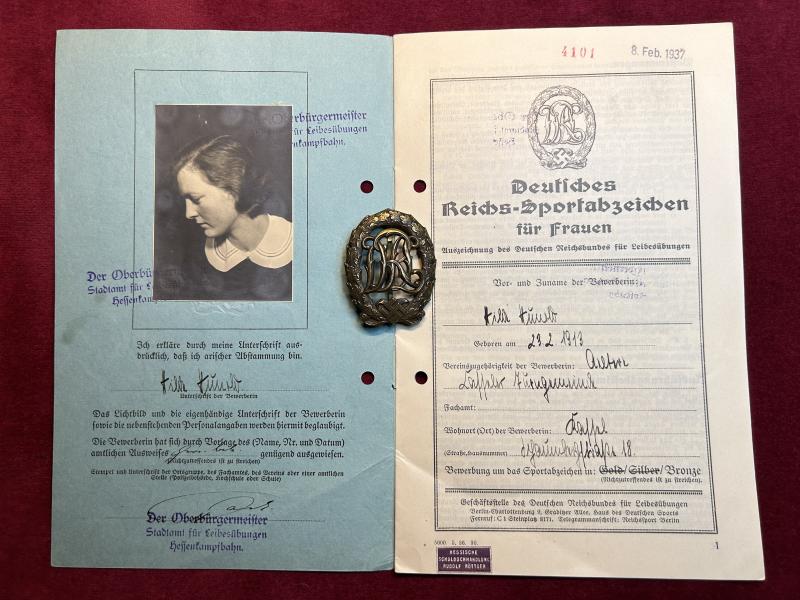 Der Oberbürgermeister
Stadtamt für Leibesübungen
Hessenkampfbahn.
Ich erkläre durch meine Unterschrift aus-
drücklich, daß ich arischer Abstammung bin.
Unterschrift der Bewerberin
Das Lichtbild und die eigenhändige Unterschrift der Bewerberin
sowie die nebenstehenden Personalangaben werden hiermit beglaubigt.
Die Bewerberin hat sich durch Vorlage des (Name, Nr. und Datum)
amtlichen Ausweises genügend ausgewiesen.
(Nichtzutreffendes ist zu streichen)
Stempel und Unterschrift der Ortsgruppe, des Fachamtes, des Vereins oder einer amtlichen
Stelle (Polizeibehörde, Hochschule oder Schule)
Der Oberbürgermeister
Stadtamt für Leibesübungen
Hessenkampfbahn.
4101
8. Feb. 1937
Deutsches
Reichs-Sportabzeichen
für Frauen
Auszeichnung des Deutschen Reichsbundes für Leibesübungen
Vor- und Zuname der Bewerberin:
Geboren am 23.2.1913
Vereinszugehörigkeit der Bewerberin:
Fachamt:
Wohnort (Ort) der Bewerberin: Kassel
(Straße, Hausnummer) 18.
Bewerbung um das Sportabzeichen in: Gold/Silber/Bronze
(Nichtzutreffendes ist zu streichen).
Geschäftsstelle des Deutschen Reichsbundes für Leibesübungen
Berlin-Charlottenburg 2, Graditzer Allee, Haus des Deutschen Sports
Fernruf: C 1 Steinplatz 8171. Telegrammanschrift: Reichssport Berlin
5000. 5. 36. 80.
1
HESSISCHE
SCHULBUCHHANDLUNG
RUDOLF RÖTTGER